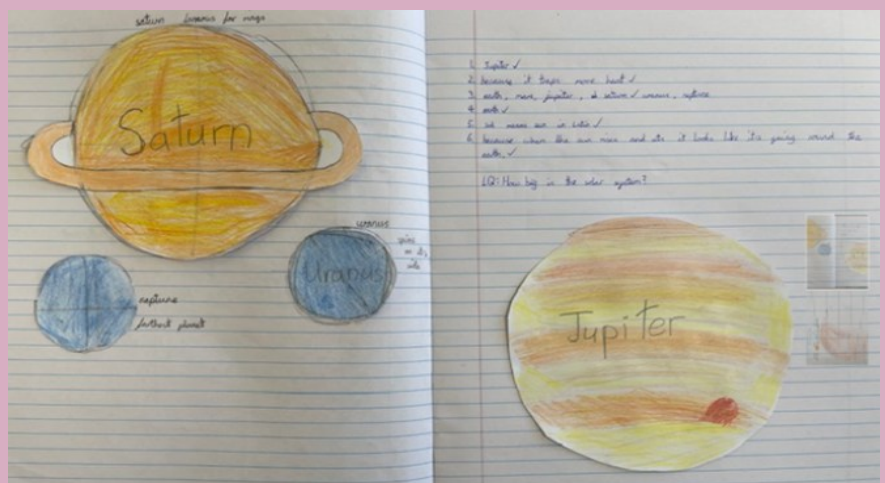 saturn famous for rings
Saturn
uranus
spins
on its
side
Uranus
neptune
farthest planet
1. Jupiter ✓
2. because it traps more heat ✓
3. earth, mars, jupiter, saturn ✓ uranus, neptune
4. earth ✓
5. sol means sun in latin ✓
6. because when the sun rises and sets it looks like its going round the
earth. ✓
LQ: How big is the solar system?
Jupiter